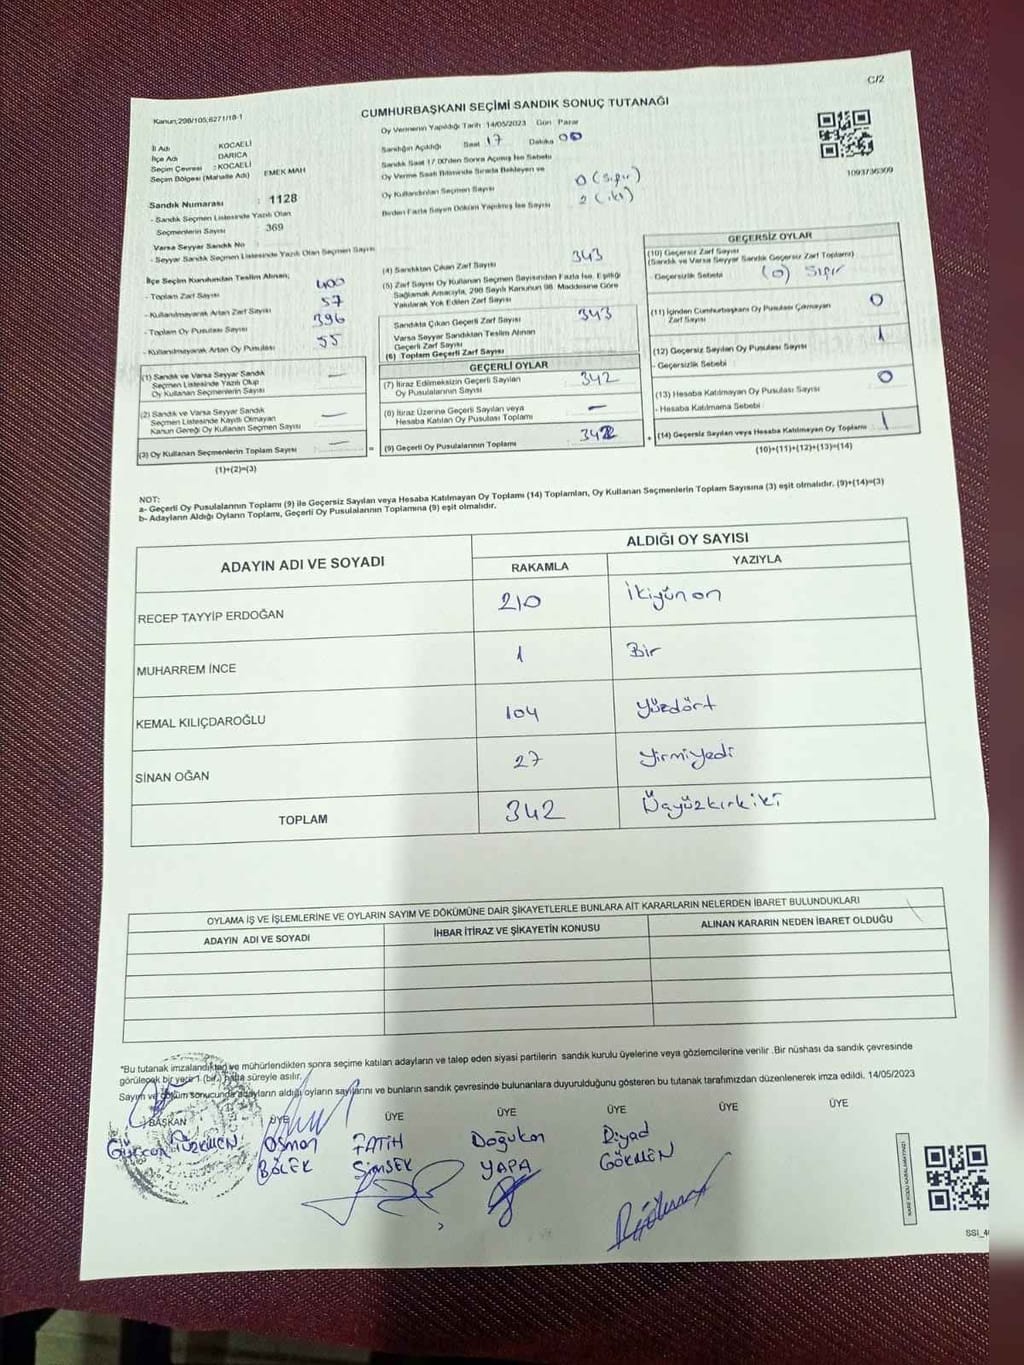 C/2
CUMHURBAŞKANI SEÇİMİ SANDIK SONUÇ TUTANAĞI
Kanun;298/105;6271/18-1
Oy Vermenin Yapıldığı Tarih 14/05/2023 Gün Pazar
Sandığın Açıldığı Saat 17 Dakika 00
Sandık Saat 17.00'den Sonra Açılmış İse Sebebi
Oy Verme Saati Bitiminde Sırada Bekleyen ve
Oy Kullandırılan Seçmen Sayısı 0 (Sıfır)
Birden Fazla Sayım Döküm Yapılmış İse Sayısı 2 (iki)
İl Adı KOCAELİ
İlçe Adı DARICA
Seçim Çevresi : KOCAELİ
Seçim Bölgesi (Mahalle Adı) EMEK MAH
1093736309
Sandık Numarası : 1128
- Sandık Seçmen Listesinde Yazılı Olan
Seçmenlerin Sayısı 369
Varsa Seyyar Sandık No
- Seyyar Sandık Seçmen Listesinde Yazılı Olan Seçmen Sayısı
İlçe Seçim Kurulundan Teslim Alınan;
- Toplam Zarf Sayısı 400
- Kullanılmayarak Artan Zarf Sayısı 57
- Toplam Oy Pusulası Sayısı 396
- Kullanılmayarak Artan Oy Pusulası 55
(1) Sandık ve Varsa Seyyar Sandık
Seçmen Listesinde Yazılı Olup
Oy Kullanan Seçmenlerin Sayısı —
(2) Sandık ve Varsa Seyyar Sandık
Seçmen Listesinde Kaydı Olmayan
Kanun Gereği Oy Kullanan Seçmen Sayısı —
(3) Oy Kullanan Seçmenlerin Toplam Sayısı —
(1)+(2)=(3)
(4) Sandıktan Çıkan Zarf Sayısı 343
(5) Zarf Sayısı Oy Kullanan Seçmen Sayısından Fazla İse, Eşitliği
Sağlamak Amacıyla, 298 Sayılı Kanunun 98. Maddesine Göre
Yakılarak Yok Edilen Zarf Sayısı
Sandıkta Çıkan Geçerli Zarf Sayısı 343
Varsa Seyyar Sandıktan Teslim Alınan
Geçerli Zarf Sayısı
(6) Toplam Geçerli Zarf Sayısı
GEÇERLİ OYLAR
(7) İtiraz Edilmeksizin Geçerli Sayılan
Oy Pusulalarının Sayısı 342
(8) İtiraz Üzerine Geçerli Sayılan veya
Hesaba Katılan Oy Pusulası Toplamı —
= (9) Geçerli Oy Pusulalarının Toplamı 342
GEÇERSİZ OYLAR
(10) Geçersiz Zarf Sayısı
(Sandık ve Varsa Seyyar Sandık Geçersiz Zarf Toplamı)
- Geçersizlik Sebebi (0) Sıfır
(11) İçinden Cumhurbaşkanı Oy Pusulası Çıkmayan
Zarf Sayısı 0
(12) Geçersiz Sayılan Oy Pusulası Sayısı 1
- Geçersizlik Sebebi :
(13) Hesaba Katılmayan Oy Pusulası Sayısı 0
- Hesaba Katılmama Sebebi :
+ (14) Geçersiz Sayılan veya Hesaba Katılmayan Oy Toplamı 1
(10)+(11)+(12)+(13)=(14)
NOT:
a- Geçerli Oy Pusulalarının Toplamı (9) ile Geçersiz Sayılan veya Hesaba Katılmayan Oy Toplamı (14) Toplamları, Oy Kullanan Seçmenlerin Toplam Sayısına (3) eşit olmalıdır. (9)+(14)=(3)
b- Adayların Aldığı Oyların Toplamı, Geçerli Oy Pusulalarının Toplamına (9) eşit olmalıdır.
ADAYIN ADI VE SOYADI
ALDIĞI OY SAYISI
RAKAMLA YAZIYLA
RECEP TAYYİP ERDOĞAN 210 İkiyüzon
MUHARREM İNCE 1 Bir
KEMAL KILIÇDAROĞLU 104 Yüzdört
SİNAN OĞAN 27 Yirmiyedi
TOPLAM 342 Üçyüzkırkiki
OYLAMA İŞ VE İŞLEMLERİNE VE OYLARIN SAYIM VE DÖKÜMÜNE DAİR ŞİKAYETLERLE BUNLARA AİT KARARLARIN NELERDEN İBARET BULUNDUKLARI
ADAYIN ADI VE SOYADI İHBAR İTİRAZ VE ŞİKAYETİN KONUSU ALINAN KARARIN NEDEN İBARET OLDUĞU
*Bu tutanak imzalandıktan ve mühürlendikten sonra seçime katılan adayların ve talep eden siyasi partilerin sandık kurulu üyelerine veya gözlemcilerine verilir .Bir nüshası da sandık çevresinde
görülecek bir yere 1 (bir) hafta süreyle asılır.
Sayım ve döküm sonucunda adayların aldığı oyların sayılarını ve bunların sandık çevresinde bulunanlara duyurulduğunu gösteren bu tutanak tarafımızdan düzenlenerek imza edildi. 14/05/2023
BAŞKAN ÜYE ÜYE ÜYE ÜYE ÜYE ÜYE
TÜRKMEN Osman FATİH Doğukan Diyad
BÖLEK ŞİMŞEK YAPA GÖKMEN